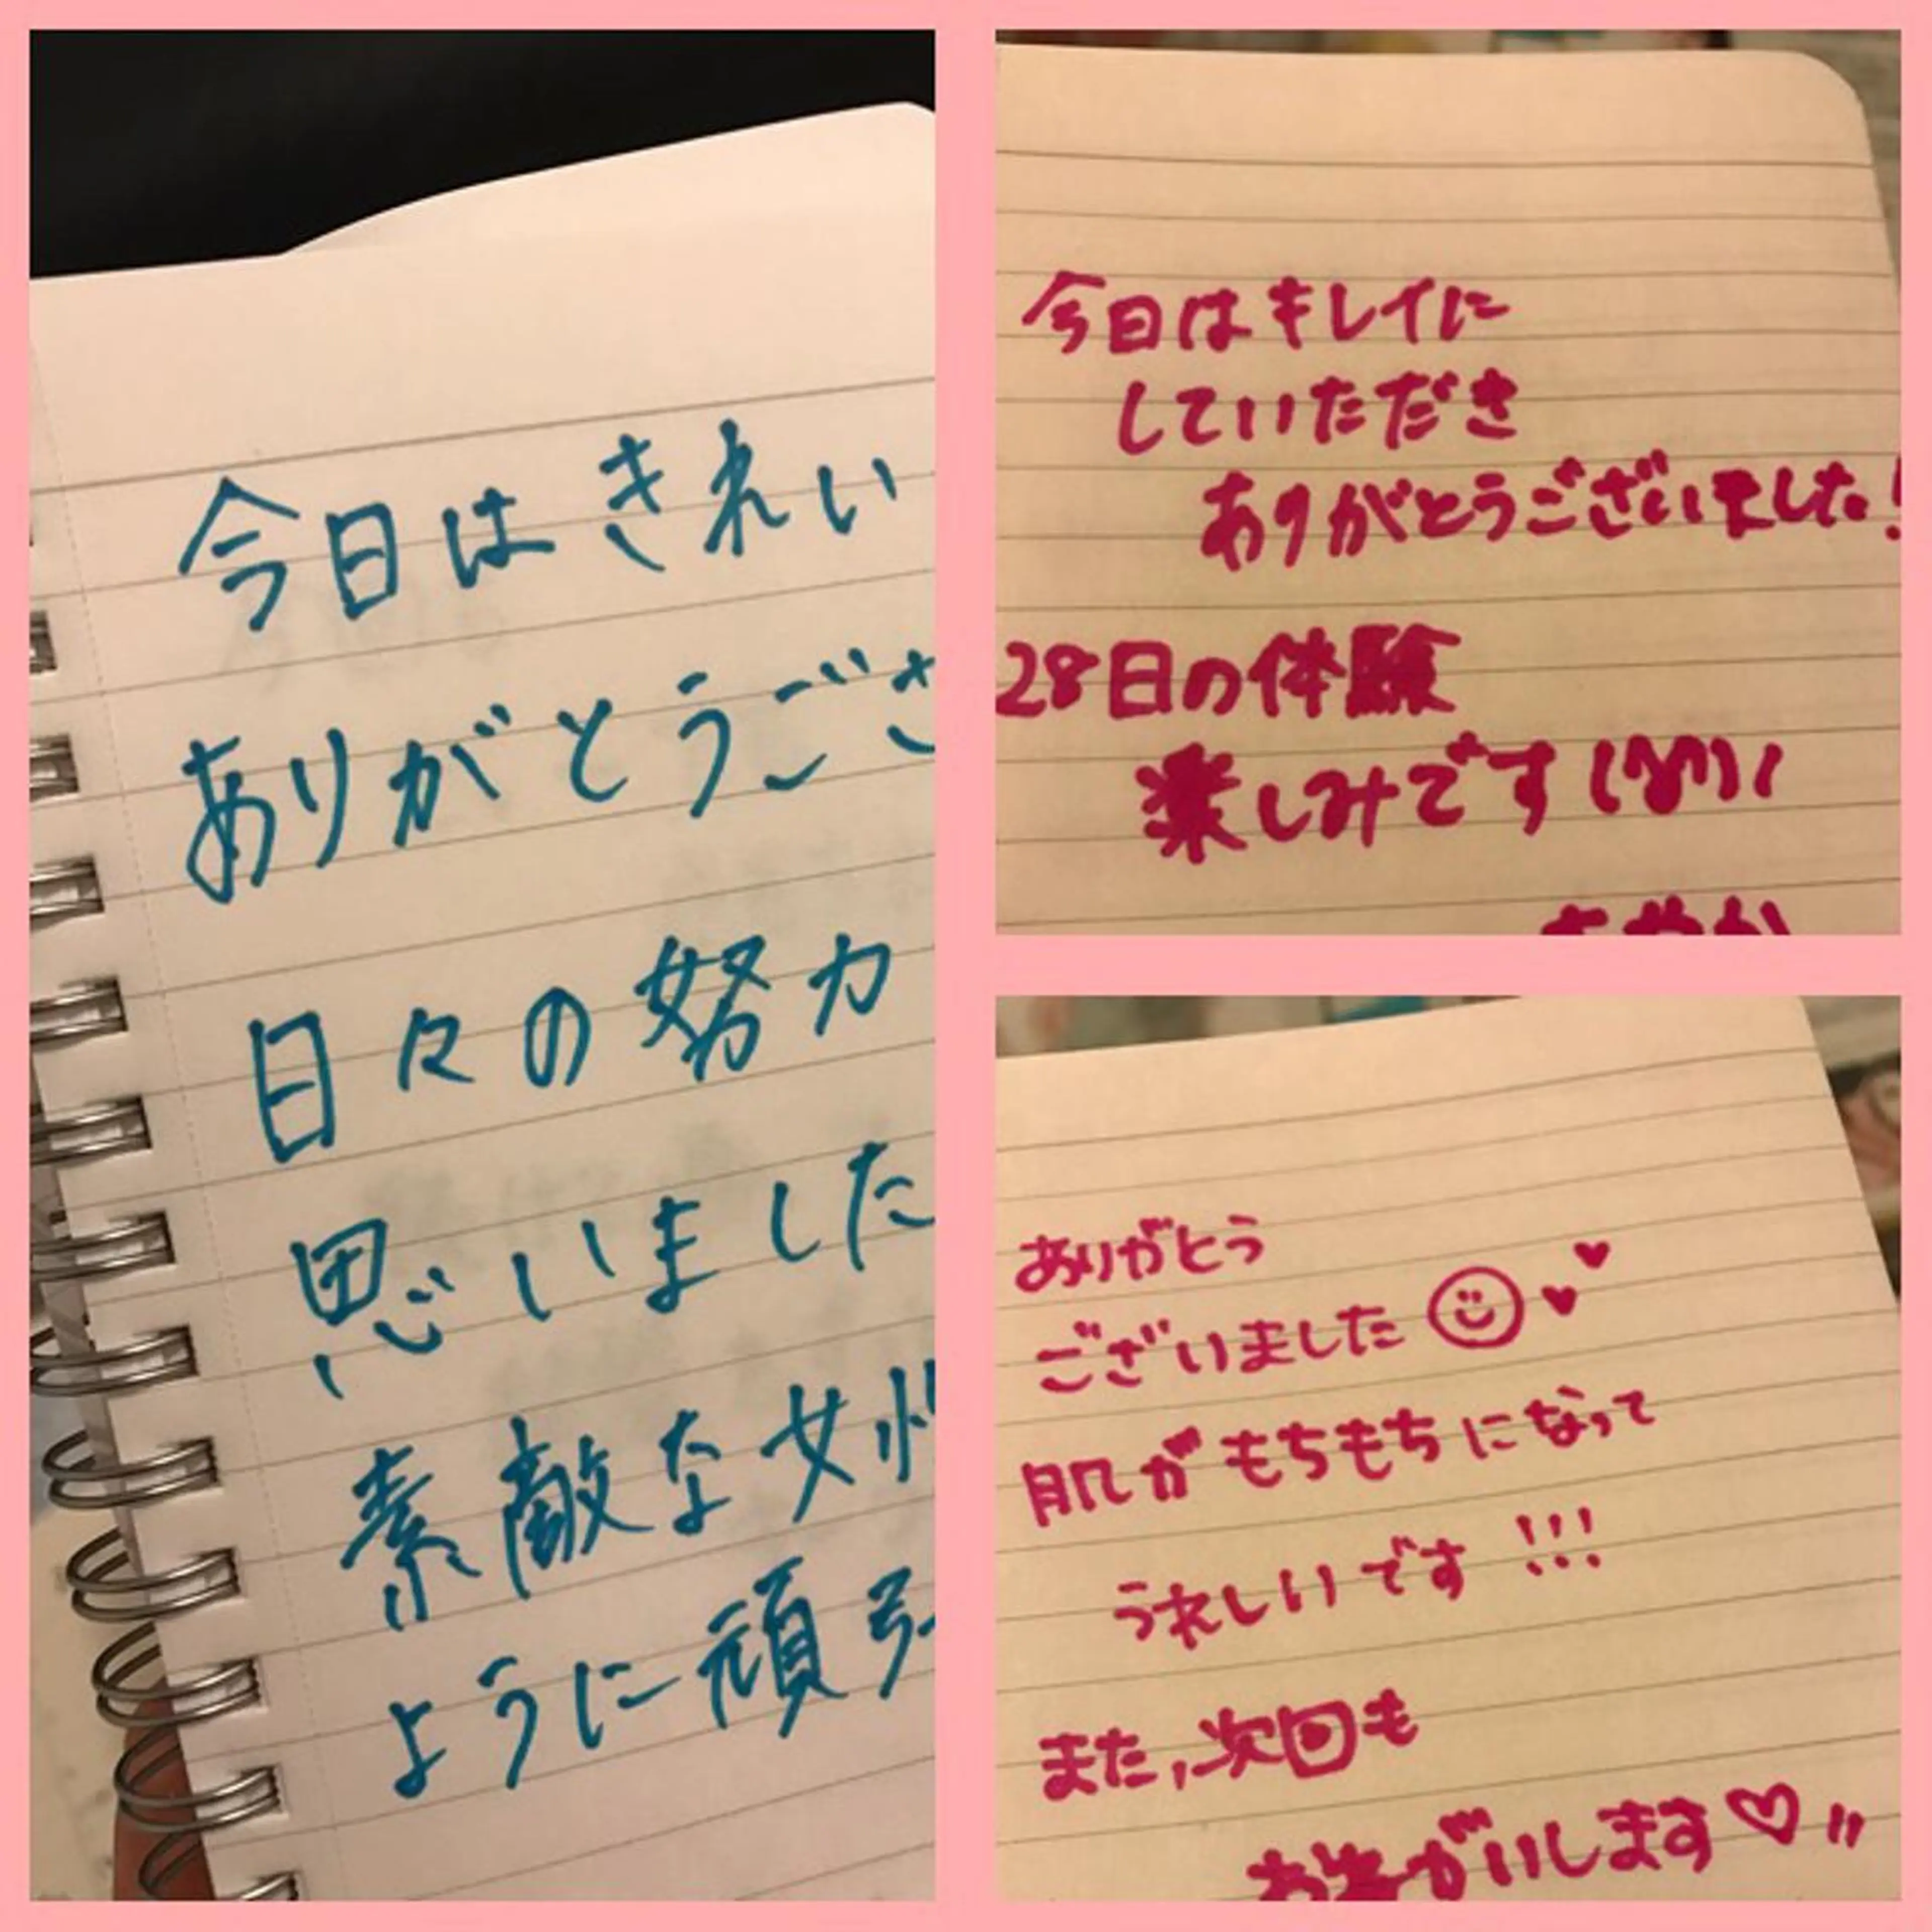 今日はきれい
ありがとうござ
日々の努力
思いました
素敵な女性
ように頑張
今日はキレイに
していただき
ありがとうございました!
28日の体験
楽しみです
ありがとう
ございました
肌がもちもちになって
うれしいです!!!
また,次回も
お願いします♡"